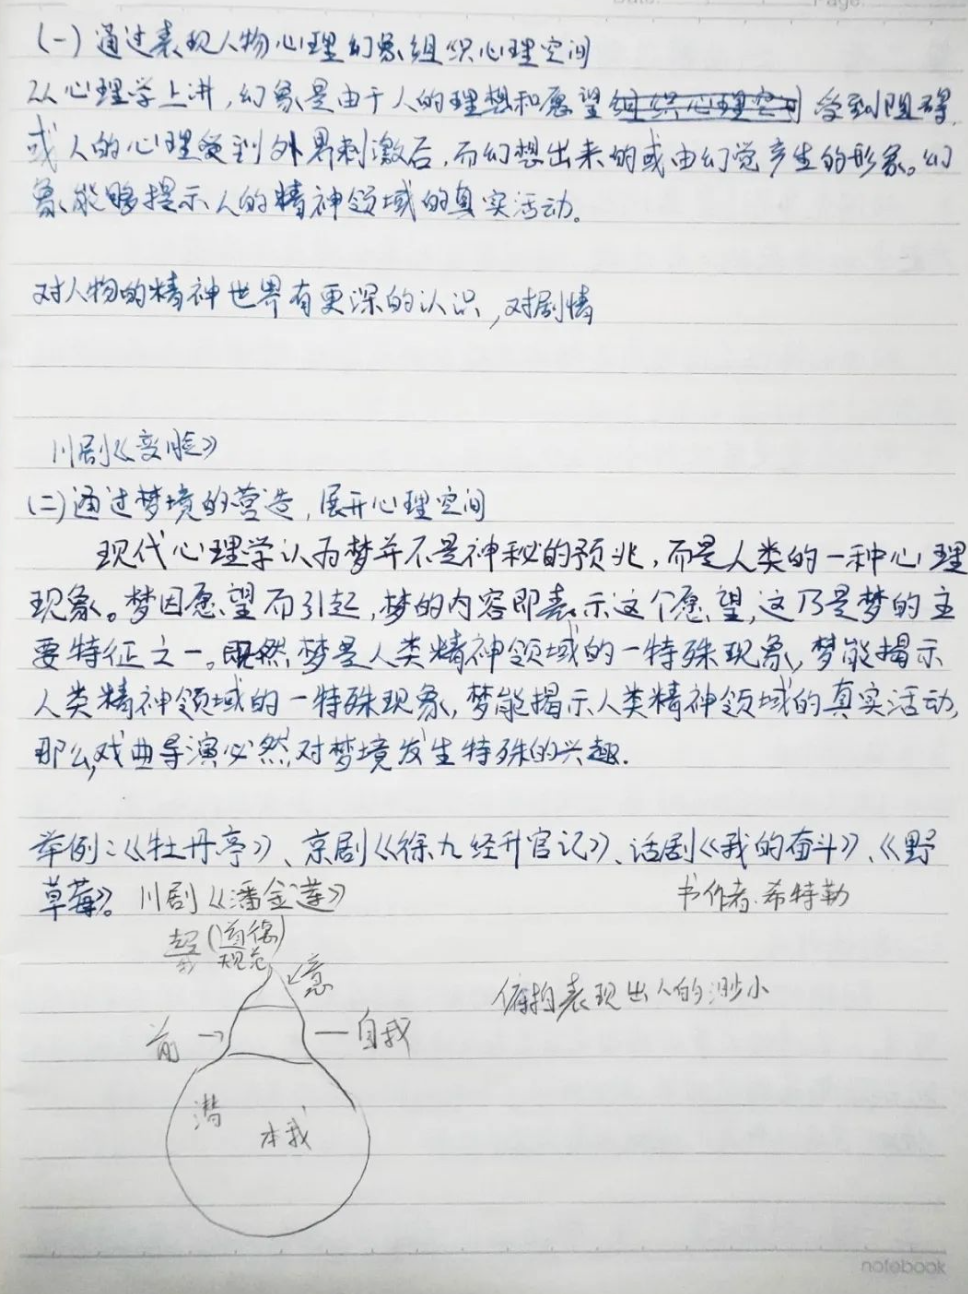 (一)通过表现人物心理幻象组织心理空间
从心理学上讲,幻象是由于人的理想和愿望组织心理空间受到阻碍,
或人的心理受到外界刺激后,而幻想出来的或由幻觉产生的形象。幻
象能够提示人的精神领域的真实活动。
对人物的精神世界有更深的认识,对剧情
川剧《变脸》
(二)通过梦境的营造,展开心理空间
现代心理学认为梦并不是神秘的预兆,而是人类的一种心理
现象。梦因愿望而引起,梦的内容即表示这个愿望,这乃是梦的主
要特征之一。既然梦是人类精神领域的一特殊现象,梦能揭示
人类精神领域的一特殊现象,梦能揭示人类精神领域的真实活动,
那么,戏曲导演必然对梦境发生特殊的兴趣.
举例:《牡丹亭》、京剧《徐九经升官记》、话剧《我的奋斗》、《野
草莓》。川剧《潘金莲》 书作者.希特勒
超我(道德规范)
意
俯拍表现出人的渺小
前 自我
潜
本我
notebook